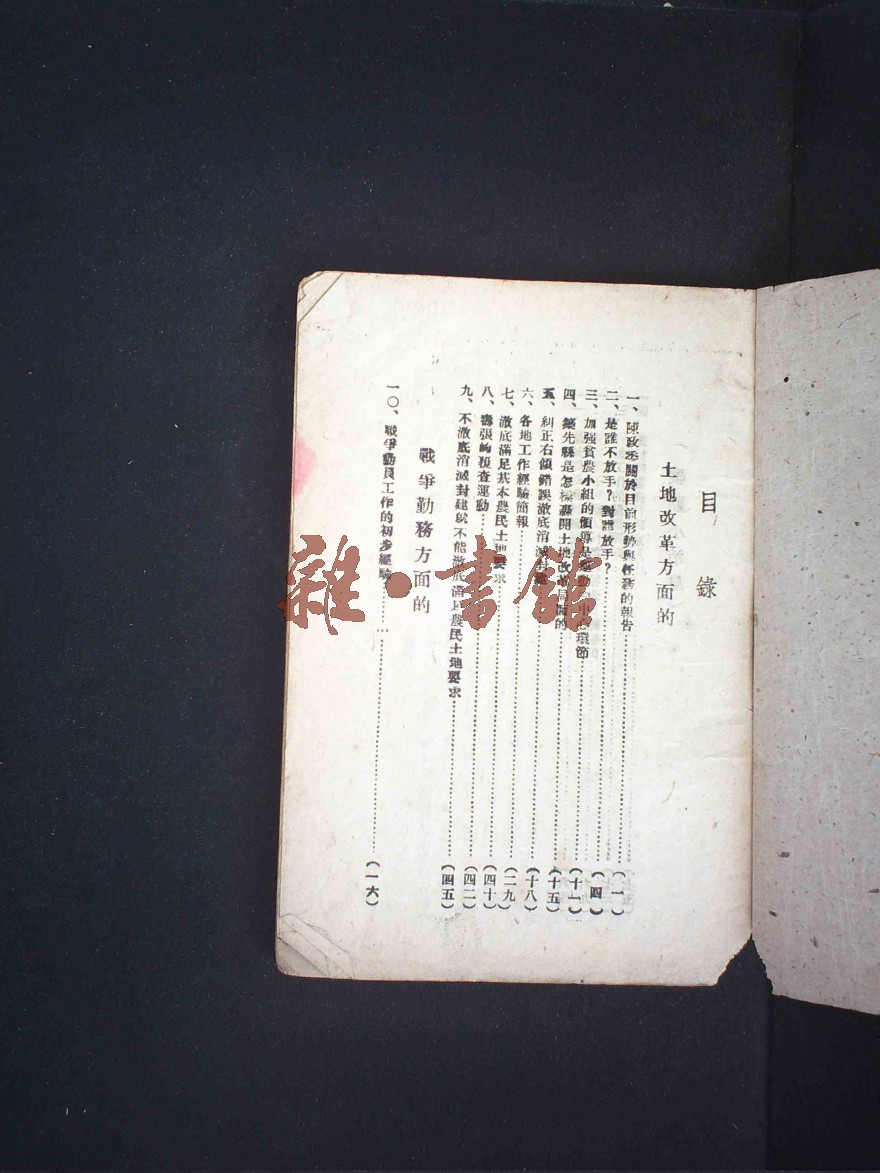 目錄
土地改革方面的
一、陳政委關於目前形勢與任務的報告……(一)
二、是誰不放手？對誰放手？……(四)
三、加强貧農小組的領導是運動 中心環節……(十一)
四、築先縣是怎樣 開土地改革局面的……(十五)
五、糾正右傾錯誤澈底消滅封建……(十八)
六、各地工作經驗簡報……(二九)
七、澈底滿足基本農民土地要求……(四十)
八、壽張的複查運動……(四二)
九、不澈底消滅封建就不能澈底滿足農民土地要求……(四五)
戰爭勤務方面的
一〇、戰爭動員工作的初步經驗……(一六)
雜·書館